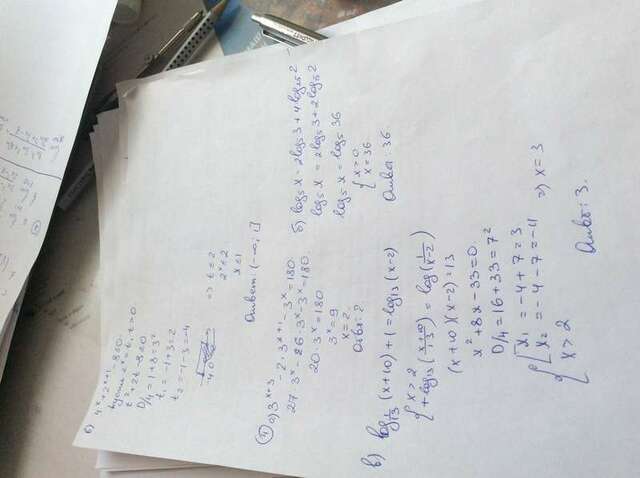 б) 4^x + 2^{x+1} - 8 ≤ 0
Пусть 2^x = t, t > 0
t² + 2t - 8 ≤ 0
D/4 = 1 + 8 = 3²
t₁ = -1 + 3 = 2
t₂ = -1 - 3 = -4
-4 0 2
=> t ≤ 2
2^x ≤ 2
x ≤ 1
Ответ: (-∞; 1]
④ а) 3^{x+3} - 2·3^{x+1} - 3^x = 180
27·3^x - 2·6·3^x - 3^x = 180
20·3^x = 180
3^x = 9
x = 2
Ответ: 2.
б) log₅ x = 2log₅ 3 + 4log₂₅ 2
log₅ x = 2log₅ 3 + 2log₅ 2
log₅ x = log₅ 36
{ x > 0
x = 36
Ответ: 36
в) log_{1/13} (x+10) + 1 = log₁₃ (x-2)
{ x > 2
+log₁₃ (x+10/13) = log(1/x-2)
(x+10)(x-2) = 13
x² + 8x - 33 = 0
D/4 = 16 + 33 = 7²
{ [ x₁ = -4 + 7 = 3
x₂ = -4 - 7 = -11
x > 2
=> x = 3
Ответ: 3.